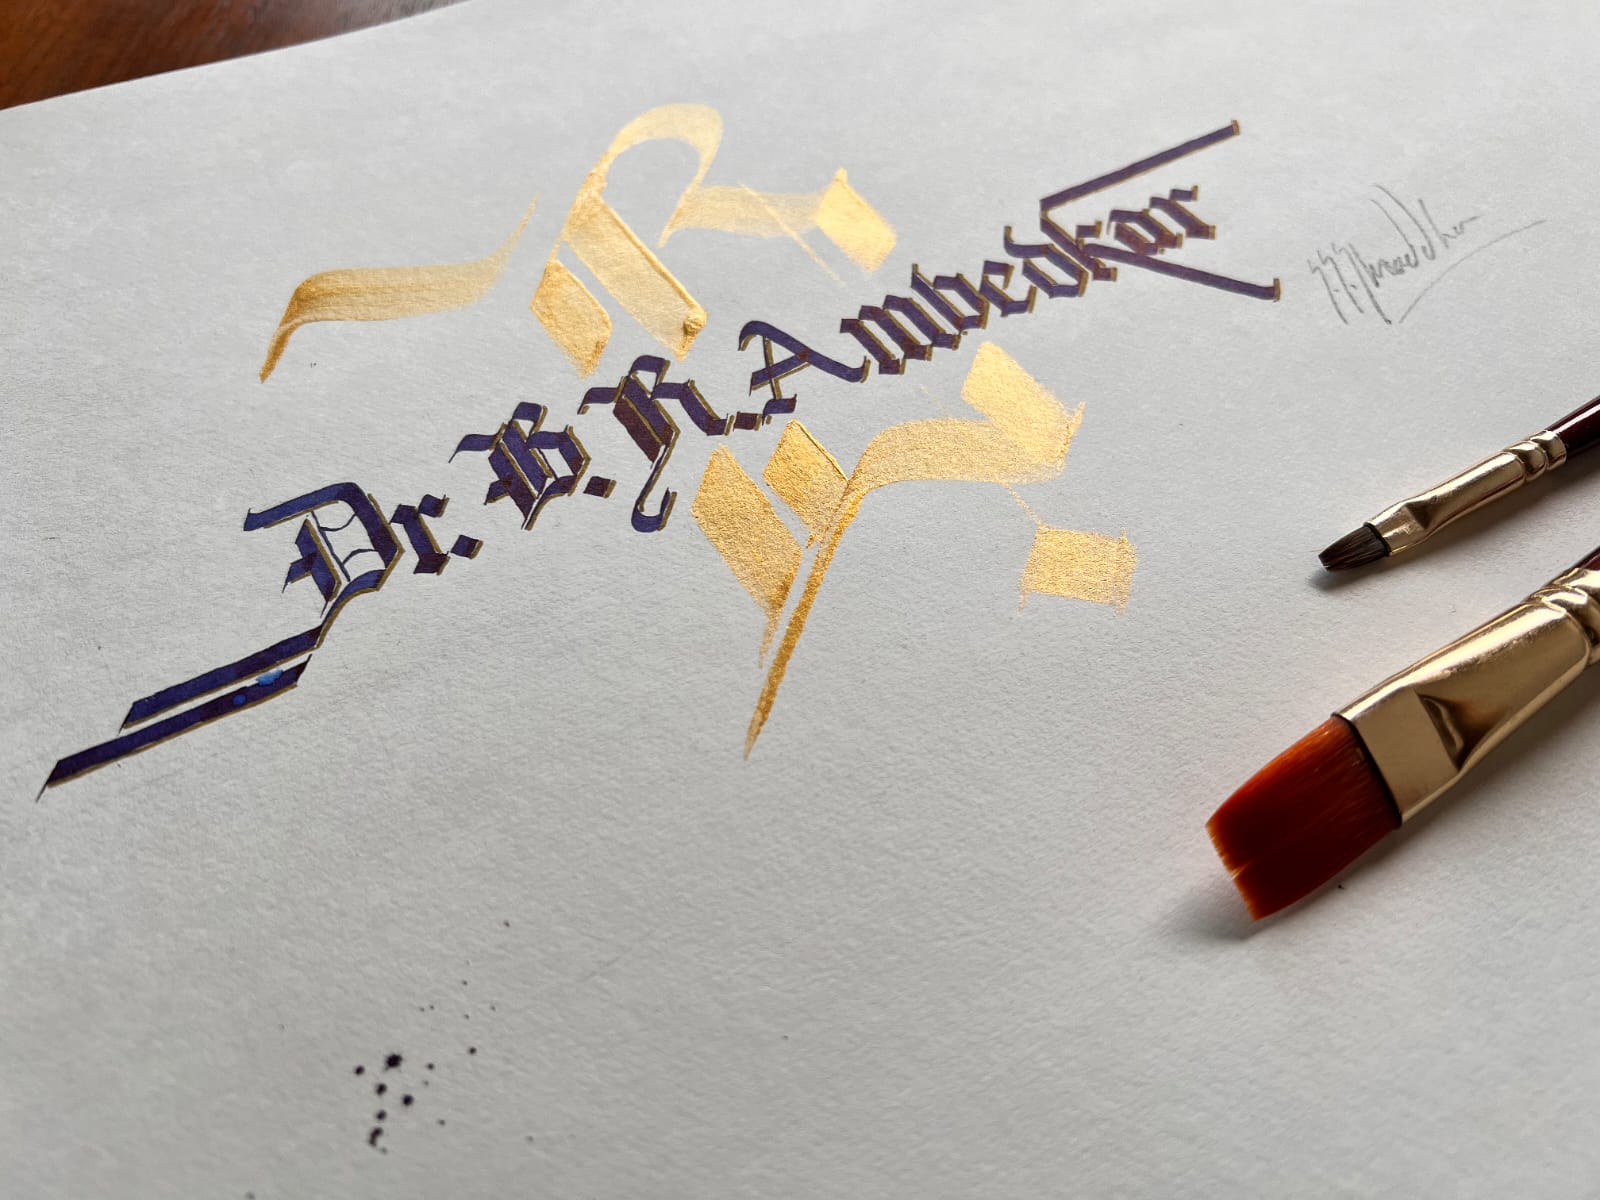 Dr. B. R. Ambedkar